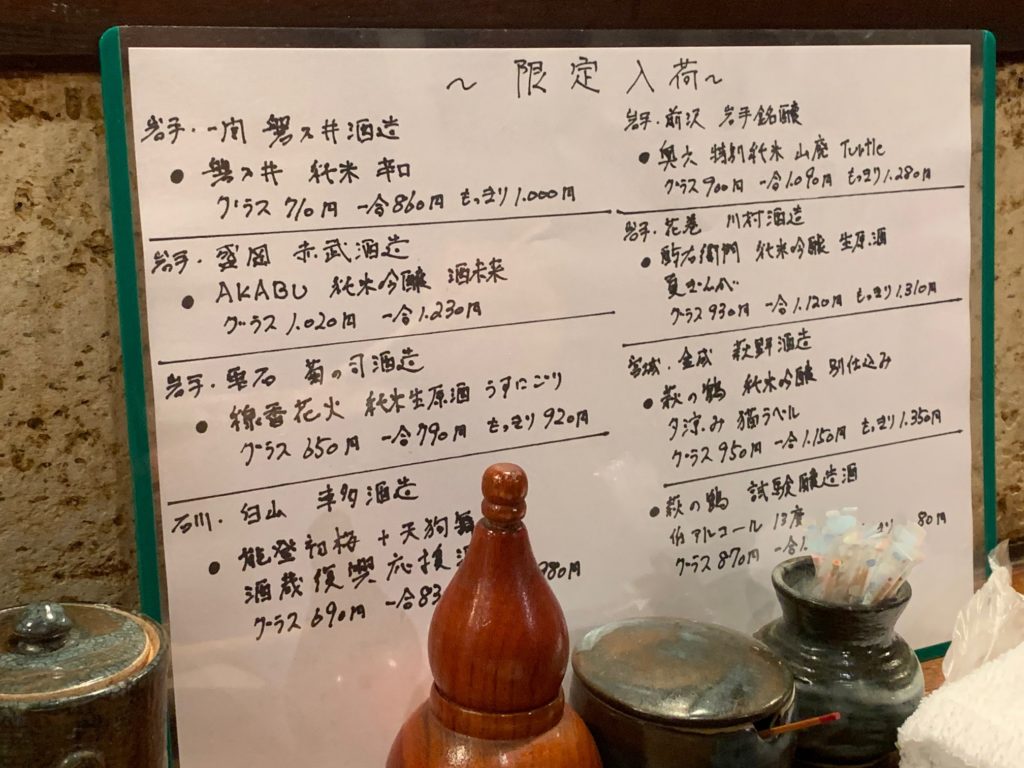 ～ 限定入荷～
岩手・一関 磐乃井酒造
● 磐乃井 純米 辛口
グラス 710円 一合860円 もっきり1.000円
岩手・盛岡 赤武酒造
● AKABU 純米吟醸 酒未来
グラス 1.020円 一合1.230円
岩手・雫石 菊の司酒造
● 線香花火 純米生原酒 うすにごり
グラス 650円 一合790円 もっきり920円
石川・白山 車多酒造
● 能登初梅 + 天狗舞
酒蔵復興応援酒
グラス 690円 一合83 980円
岩手・前沢 岩手銘醸
● 奥六 特別純米 山廃 Turtle
グラス900円 一合1.090円 もっきり1.280円
岩手・花巻 川村酒造
● 酉与右衛門 純米吟醸 生原酒
夏ぎんが
グラス930円 一合1.120円 もっきり1.310円
宮城・金成 萩野酒造
● 萩の鶴 純米吟醸 別仕込み
夕涼み 猫ラベル
グラス950円 一合1.150円 もっきり1.350円
● 萩の鶴 試験醸造酒
低アルコール 13度
グラス870円 一合1. 80円